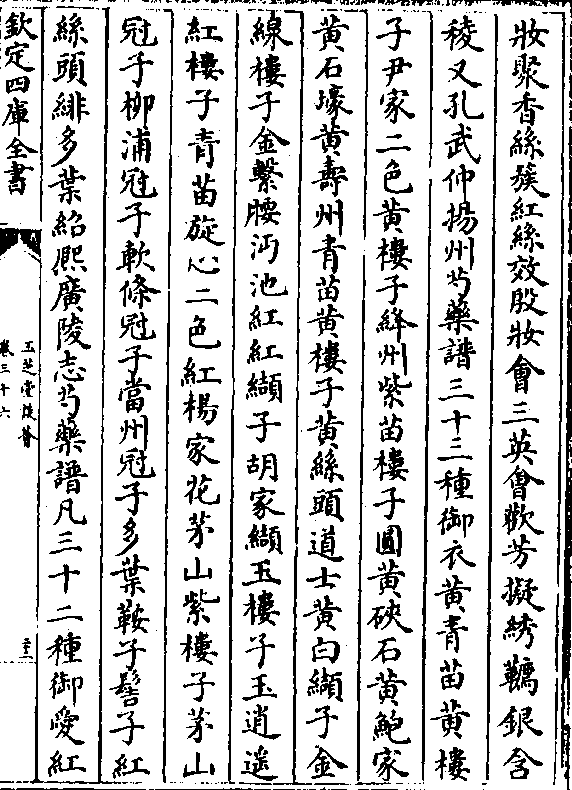 妝聚香絲簇紅絲效殷妝會三英會歡芳擬綉韉銀含
稜又孔武仲揚州芍藥譜三十二種御衣黄青苗黄樓
子尹家二色黄樓子絳州紫苗樓子圓黄硤石黄鮑家
黄石壕黄壽州青苗黄樓子黄絲頭道士黄白纈子金
線樓子金繫腰沔池紅紅纈子胡家纈玉樓子玉逍遥
紅樓子青苗旋心二色紅楊家花茅山紫樓子茅山
冠子柳浦冠子軟條冠子當州冠子多葉鞍子髻子紅
絲頭緋多葉紹熙廣陵志芍藥譜凡三十二種御愛紅
欽定四庫全書
玉芝堂談薈
卷三十六